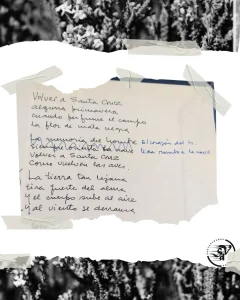 Volver a Santa Cruz
alguna primavera
cuando perfume el campo
la flor de mata negra
La memoria del hombre El corazón del
siempre orienta la nave
Volver a Santa Cruz
Como vuelven las aves.
La tierra tan lejana
tira fuerte del alma
y el cuerpo sube al aire
y al viento se derrama